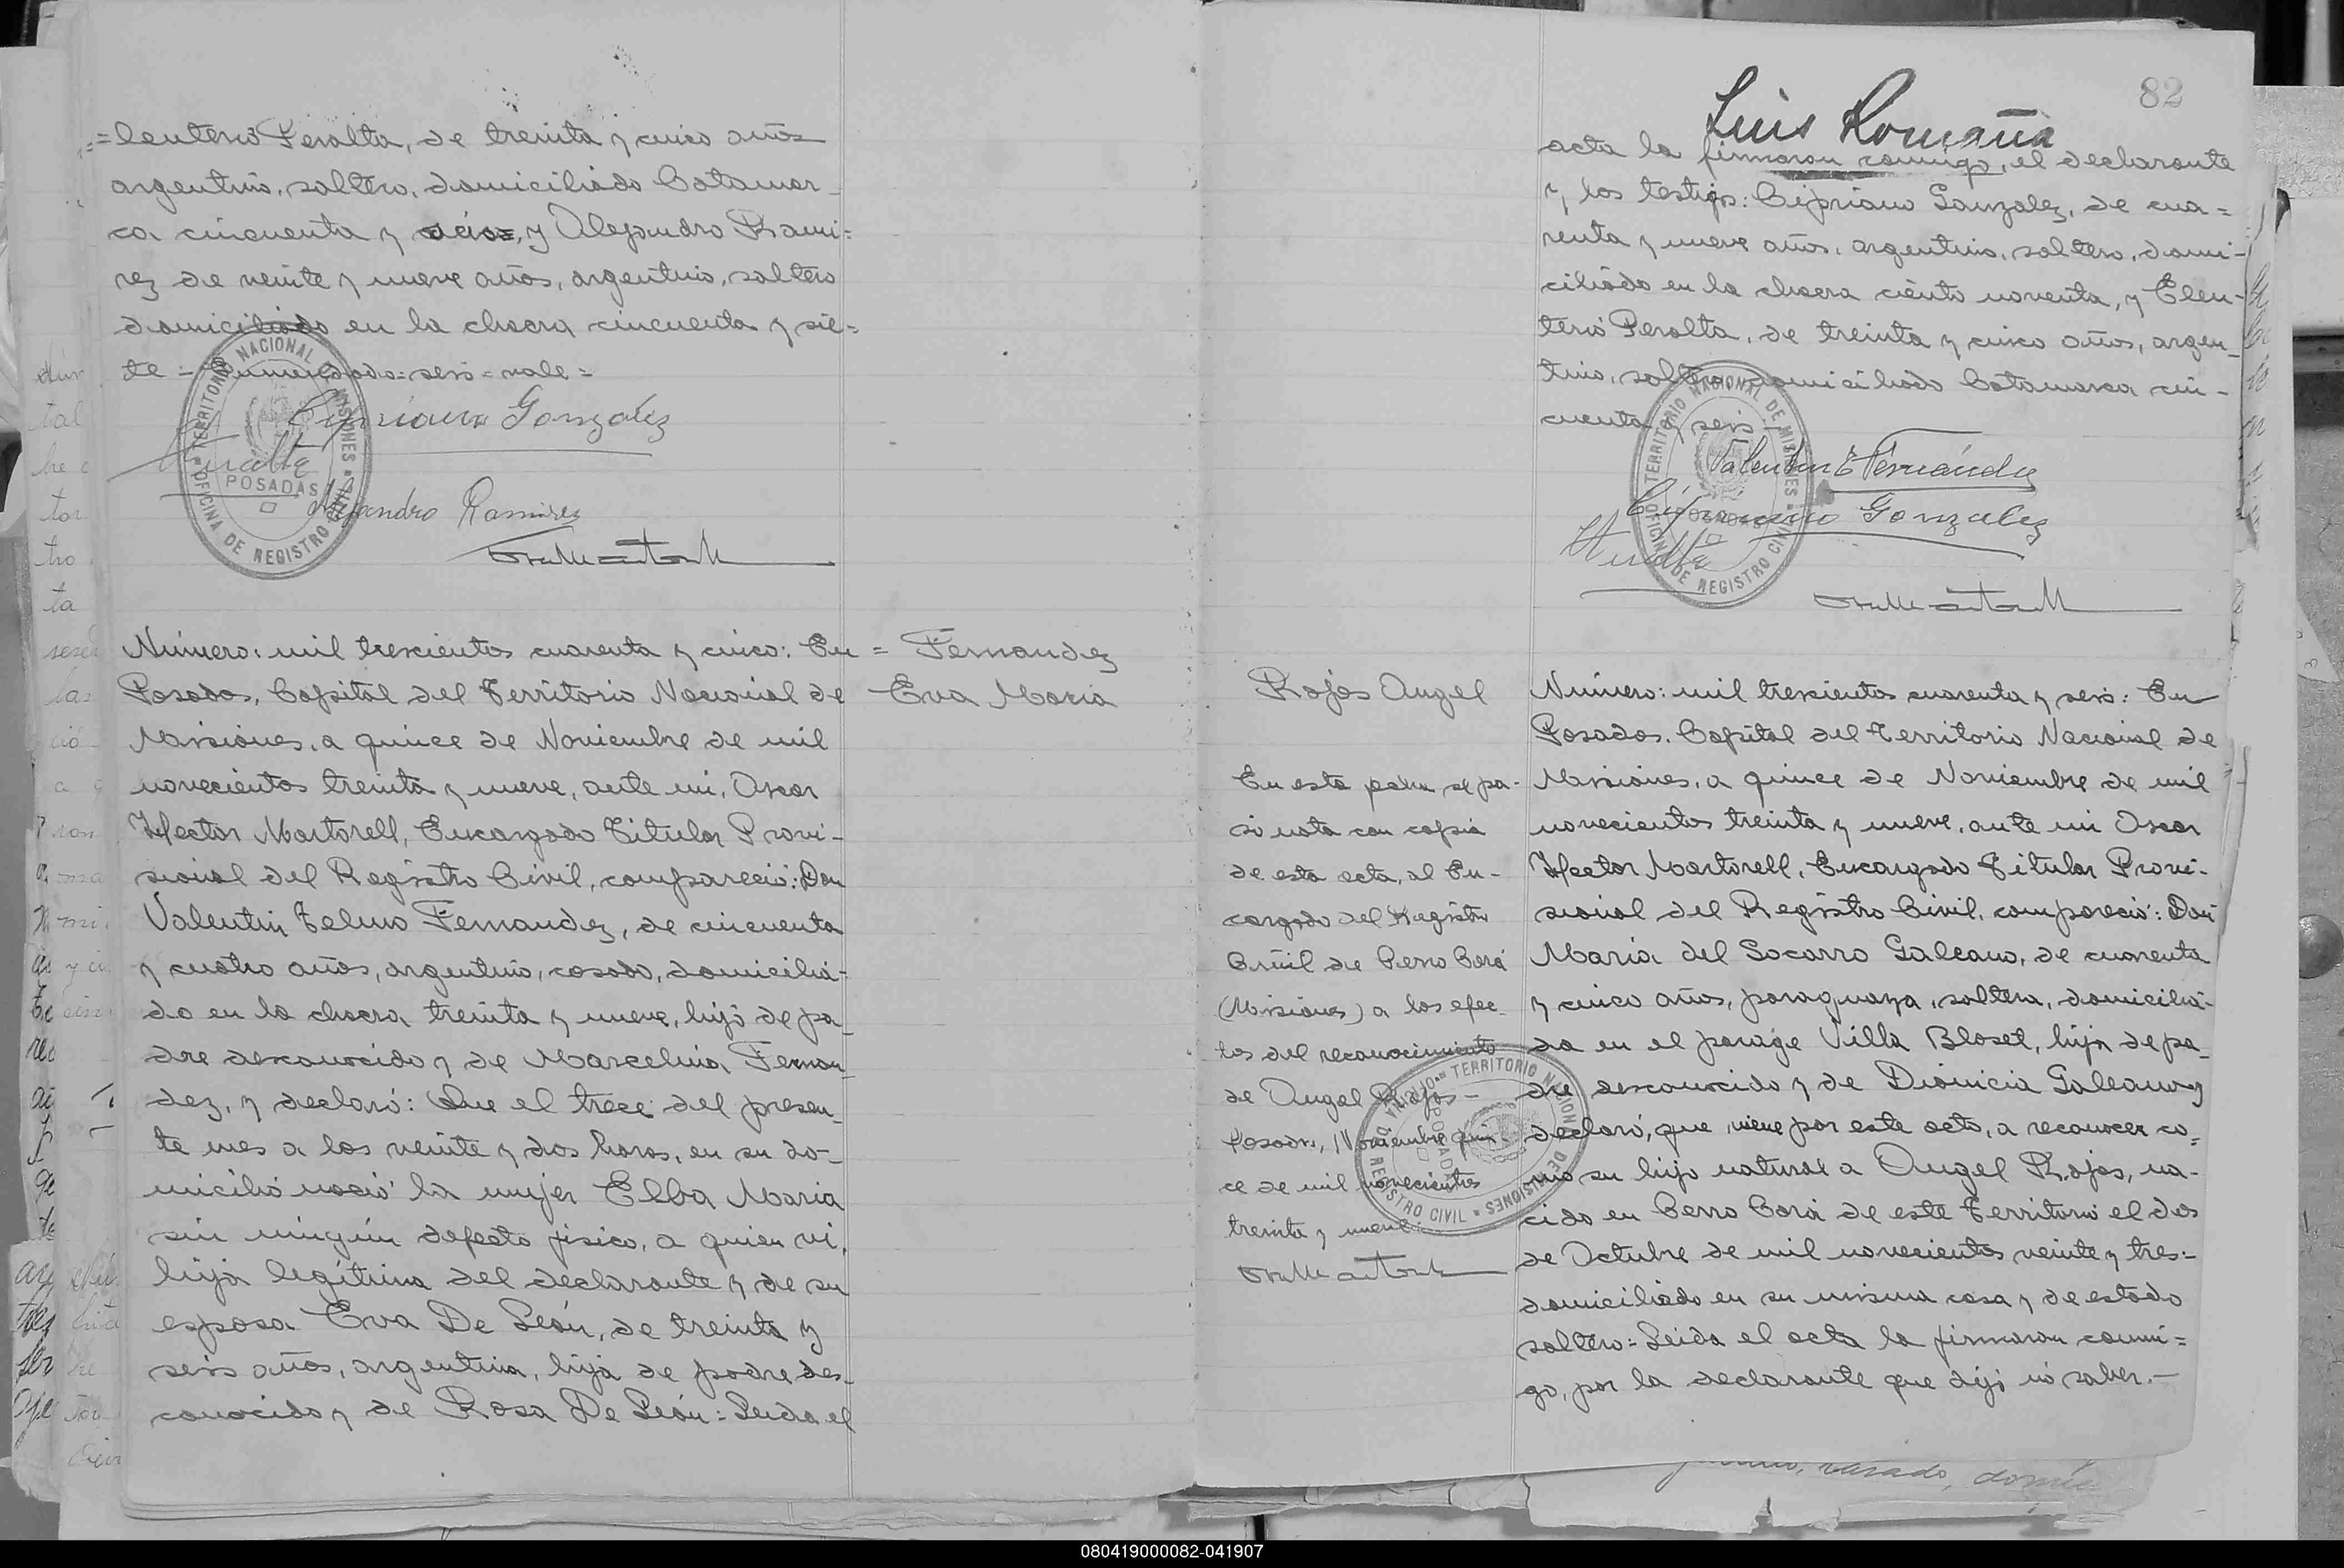 =leuterio Peralta, de treinta y cinco años
argentino, soltero, domiciliado Catamar-
ca cincuenta y seis, y Alejandro Rami=
rez de veinte y nueve años, argentino, soltero
domiciliado en la chacra cincuenta y sie=
te = Enmendado=seis=vale=
Cipriano Gonzalez
Alejandro Ramirez
TERRITORIO NACIONAL DE MISIONES
POSADAS
OFICINA DE REGISTRO CIVIL
Número: mil trescientos cuarenta y cinco: En
Posadas, Capital del Territorio Nacional de
Misiones, a quince de Noviembre de mil
novecientos treinta y nueve, ante mi, Oscar
Hector Martorell, Encargado Titular Provi-
sional del Registro Civil, compareció: Don
Valentin Telmo Fernandez, de cincuenta
y cuatro años, argentino, casado, domicilia-
do en la chacra treinta y nueve, hijo de pa-
dre desconocido y de Marcelina Fernan-
dez, y declaró: Que el trece del presen-
te mes a las veinte y dos horas, en su do-
micilio nació la mujer Elba Maria
sin ningún defecto fisico, a quien vi,
hija legítima del declarante y de su
esposa Eva De León, de treinta y
seis años, argentina, hija de padre des-
conocido y de Rosa De León: Leida el
= Fernandez
Eva Maria
82
Luis Romaña
acta la firmaron conmigo, el declarante
y los testigos: Cipriano Gonzalez, de cua=
renta y nueve años, argentino, soltero, domi-
ciliado en la chacra ciento noventa, y Eleu-
terio Peralta, de treinta y cinco años, argen-
tino, soltero domiciliado Catamarca cin-
cuenta y seis
Valentin T Fernández
Cipriano Gonzalez
TERRITORIO NACIONAL DE MISIONES
OFICINA DE REGISTRO CIVIL
Rojas Angel
En esta fecha se pa-
só nota con copia
de esta acta, al En-
cargado del Registro
Civil de Cerro Corá
(Misiones) a los efec-
tos del reconocimiento
de Angel Rojas -
Posadas, Noviembre quin-
ce de mil novecientos
treinta y nueve.
TERRITORIO NACIONAL DE MISIONES
REGISTRO CIVIL
Número: mil trescientos cuarenta y seis: En
Posadas, Capital del Territorio Nacional de
Misiones, a quince de Noviembre de mil
novecientos treinta y nueve, ante mi Oscar
Hector Martorell, Encargado Titular Provi-
sional del Registro Civil, compareció: Doña
Maria del Socorro Galeano, de cuarenta
y cinco años, paraguaya, soltera, domicilia-
da en el paraje Villa Bloset, hija de pa-
dre desconocido y de Dionicia Galeano y
declaró, que viene por este acto, a reconocer co-
mo su hijo natural a Angel Rojas, na-
cido en Cerro Corá de este Territorio el dos
de Octubre de mil novecientos veinte y tres:-
domiciliado en su misma casa y de estado
soltero: Leida el acta la firmaron conmi=
go, por la declarante que dijo nó saber.-
080419000082-041907